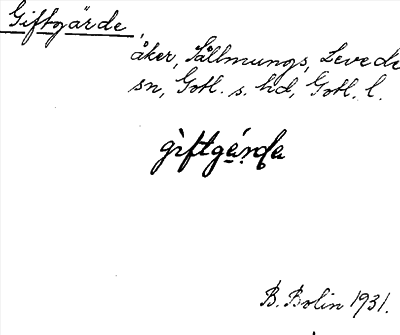 Giftgärde,
åker, Sållmungs, Levede
sn, Gotl. s. hd, Gotl. l.
gìftgá̱rda
B. Bolin 1931.